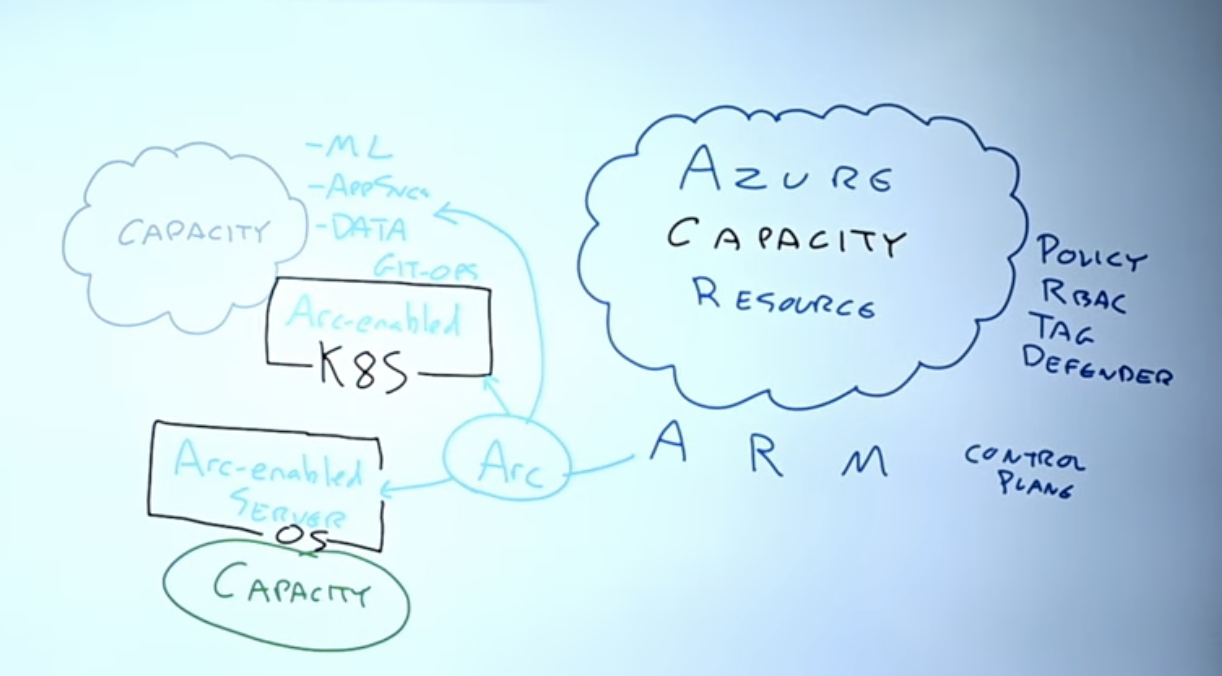 - ML
- APPSVCS
- DATA
GIT-OPS
CAPACITY
Arc-enabled
K8S
Arc-enabled
SERVER
OS
CAPACITY
Arc
AZURE
CAPACITY
RESOURCE
POLICY
RBAC
TAG
DEFENDER
ARM
CONTROL
PLANE